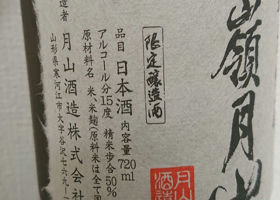 嶺月山
限定醸造酒
品目 日本酒 内容量720ml
アルコール分15度 精米歩合50%
原材料名 米、米麹(原料米は全て国
造者 月山酒造株式会社
山形県寒河江市大字谷沢七六九-一
月山
酒造